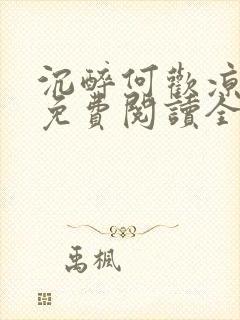 沉醉何歡涼
免費閱讀全
禹楓